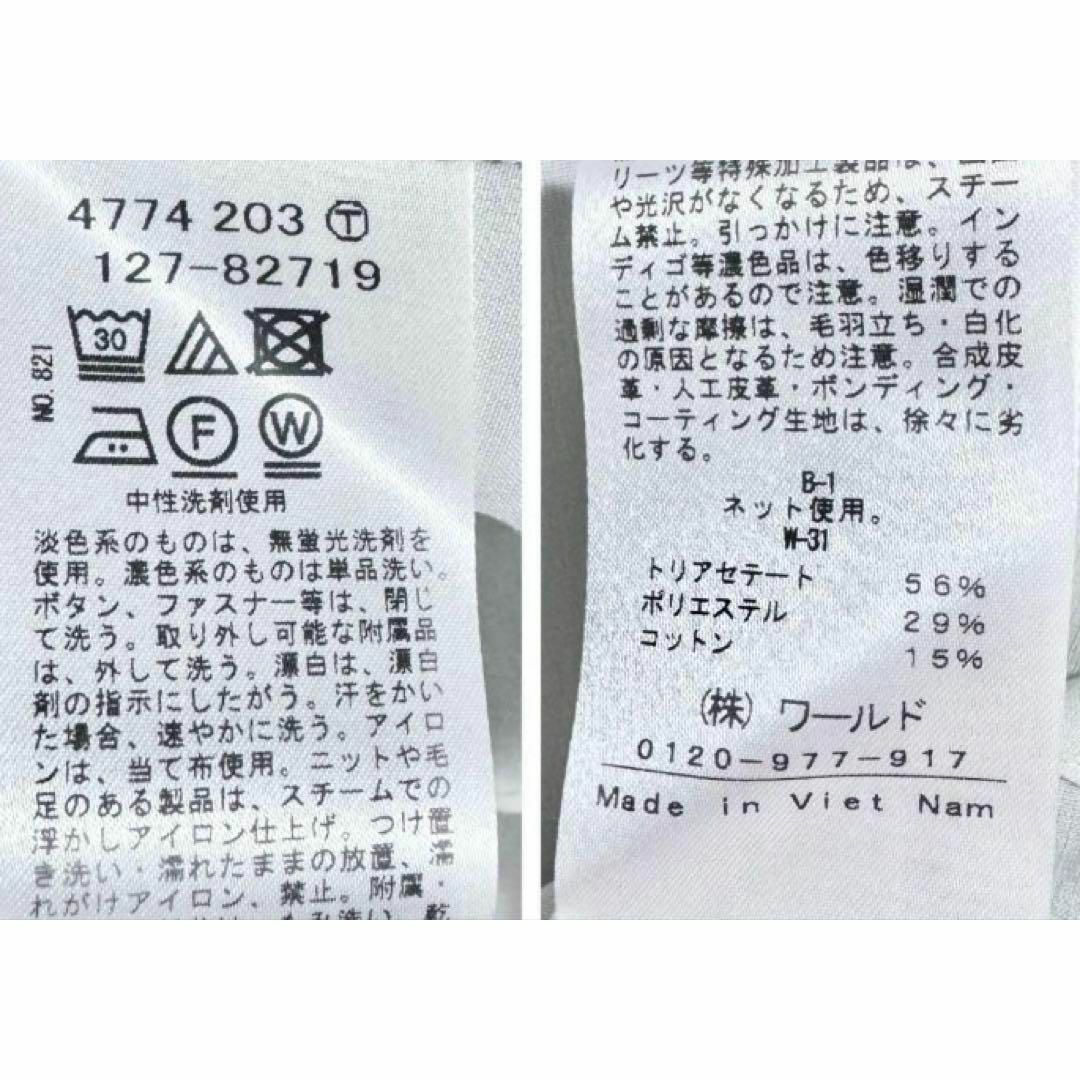 4774 203 Ⓣ
127-82719
NO. 821
30
F
W
中性洗剤使用
淡色系のものは、無蛍光洗剤を
使用。濃色系のものは単品洗い。
ボタン、ファスナー等は、閉じ
て洗う。取り外し可能な附属品
は、外して洗う。漂白は、漂白
剤の指示にしたがう。汗をかい
た場合、速やかに洗う。アイロ
ンは、当て布使用。ニットや毛
足のある製品は、スチームでの
浮かしアイロン仕上げ。つけ置
き洗い・濡れたままの放置、濡
れがけアイロン、禁止。附属・
リーツ等特殊加工製品は、
や光沢がなくなるため、スチー
ム禁止。引っかけに注意。イン
ディゴ等濃色品は、色移りする
ことがあるので注意。湿潤での
過剰な摩擦は、毛羽立ち・白化
の原因となるため注意。合成皮
革・人工皮革・ボンディング・
コーティング生地は、徐々に劣
化する。
B-1
ネット使用。
W-31
トリアセテート 56%
ポリエステル 29%
コットン 15%
(株) ワールド
0120-977-917
Made in Viet Nam